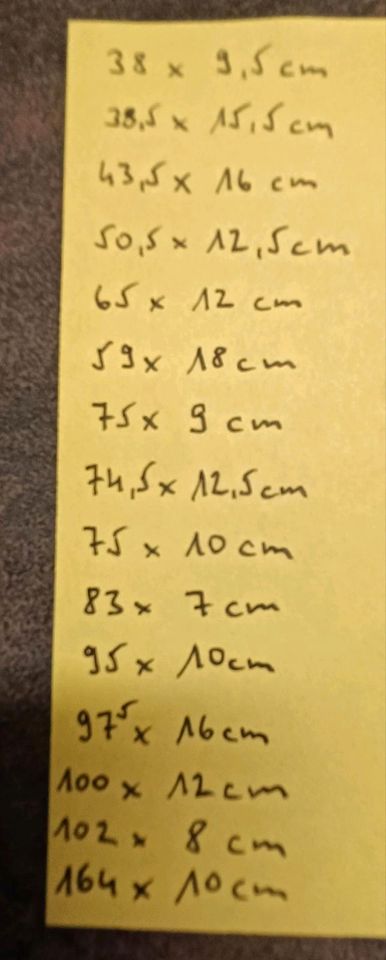 38 x 9,5 cm
38,5 x 15,5 cm
43,5 x 16 cm
50,5 x 12,5 cm
65 x 12 cm
59 x 18 cm
75 x 9 cm
74,5 x 12,5 cm
75 x 10 cm
83 x 7 cm
95 x 10 cm
97⁵ x 16 cm
100 x 12 cm
102 x 8 cm
164 x 10 cm